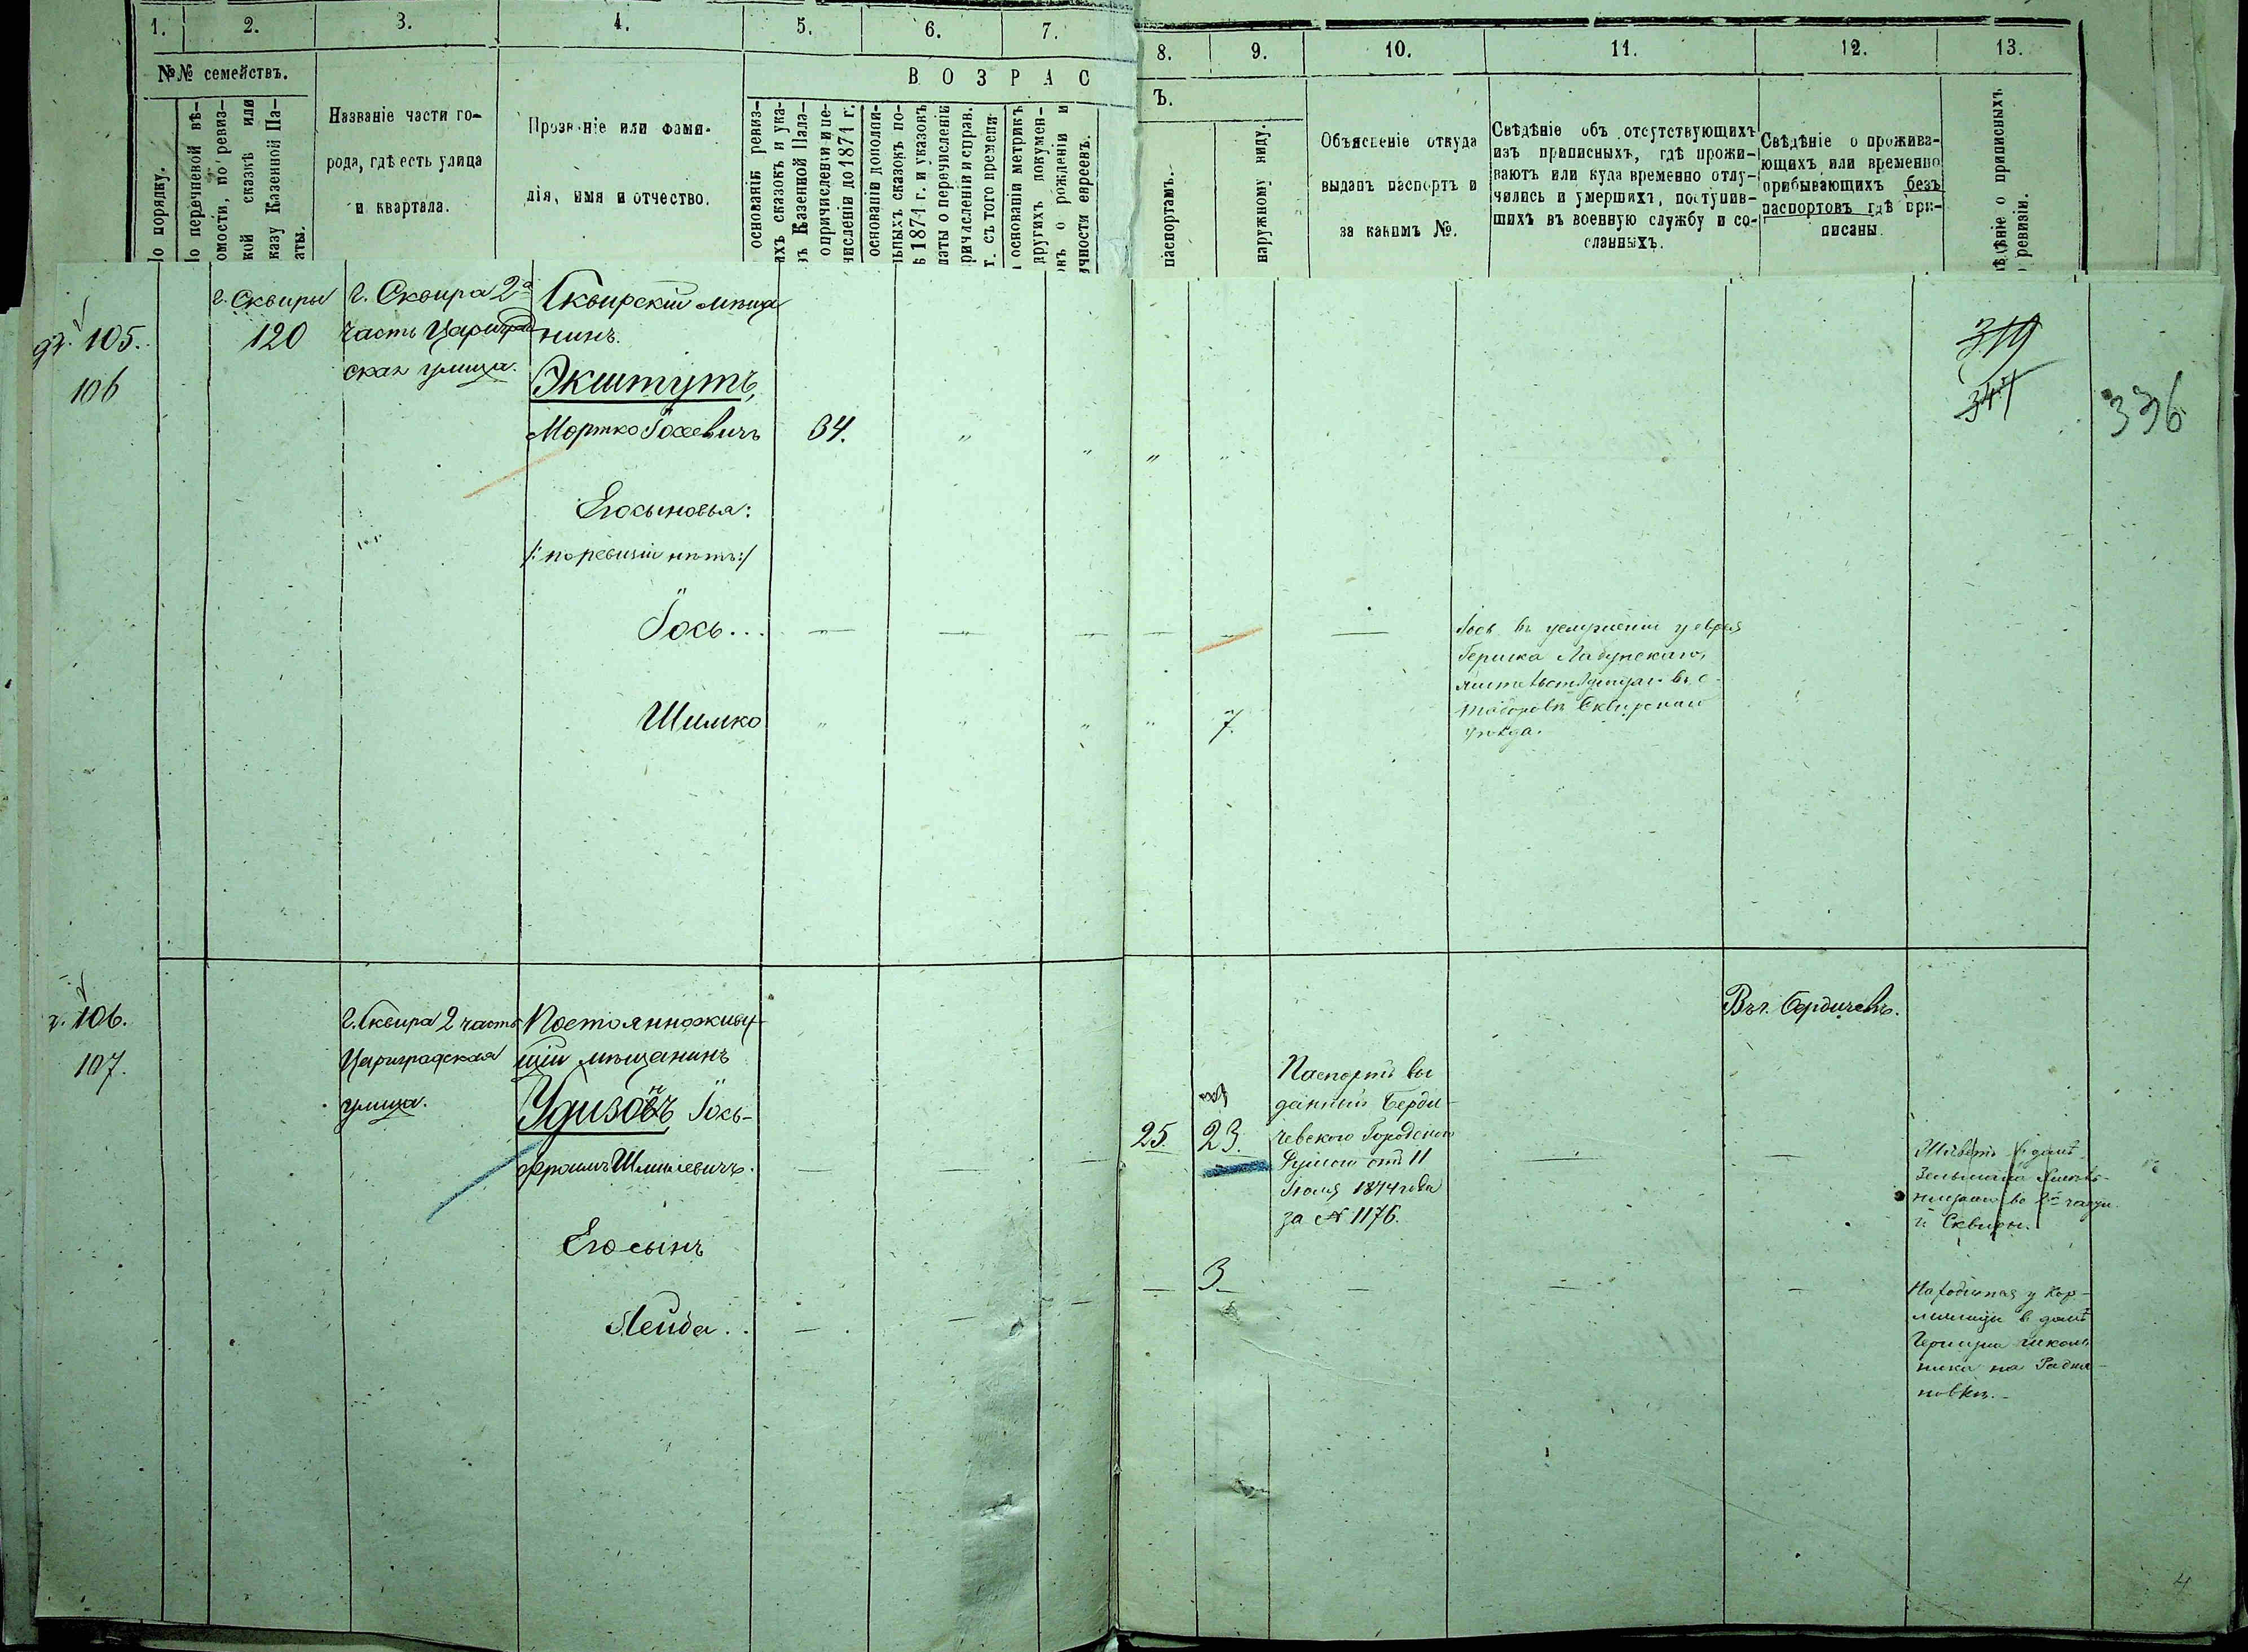 1. 2. 3. 4. 5. 6. 7. 8. 9. 10. 11. 12. 13.
№№ семействъ.
В О З Р А С
Ъ.
По порядку.
По перечневой вѣ-
домости, по ревиз-
ской сказкѣ или
указу Казенной Па-
латы.
Названіе части го-
рода, гдѣ есть улица
и квартала.
Прозваніе или фами-
лія, имя и отчество.
основаніи ревиз-
ихъ сказокъ и ука-
въ Казенной Пала-
о причисленіи и пе-
численіи до 1871 г.
основаніи дополни-
ьныхъ сказокъ по-
ѣ 1874 г. и указокъ
латы о перечисленіи
причисленіи и справ.
г. съ того времени.
основаніи метрикъ
другихъ докумен-
овъ о рожденіи и
ичности евреевъ.
паспортамъ.
наружному виду.
Объясненіе откуда
выданъ паспортъ и
за какимъ №.
Свѣдѣніе объ отсутствующихъ
изъ приписныхъ, гдѣ прожи-
ваютъ или куда временно отлу-
чились и умершихъ, поступив-
шихъ въ военную службу и со-
сланныхъ.
Свѣдѣніе о прожива-
ющихъ или временно
прибывающихъ безъ
паспортовъ гдѣ при-
писаны.
ѣдѣніе о приписныхъ
ревизіи.
105.
106
г. Сквиры
120
г. Сквира 2я
часть Цариград
ская улица.
Сквирскій мѣща
нинъ.
Экштутъ,
Мортко Іосевичъ 34.
319
336
Его сыновья:
/:по ревизіи нѣтъ:/
Іось...
Іось въ услуженіи у еврея
Гершка
Сквирскаго
уѣзда.
Шимко 7.
106.
107.
г. Сквира 2 часть
Цариградская
улица.
Постоянноживу-
щій мѣщанинъ
Удизонъ Іось-
фроимъ Шмилевичъ.
25. 23.
Паспортъ вы
данный Берди-
чевскою Городскою
Думою отъ 11
Іюля 1874 года
за № 1176.
Въ г. Бердичевѣ.
Живетъ въ домѣ
во 2й части
г. Сквиры.
Его сынъ
Лейба.. 3
у Кор-
милицы въ домѣ
на
новкѣ.
4